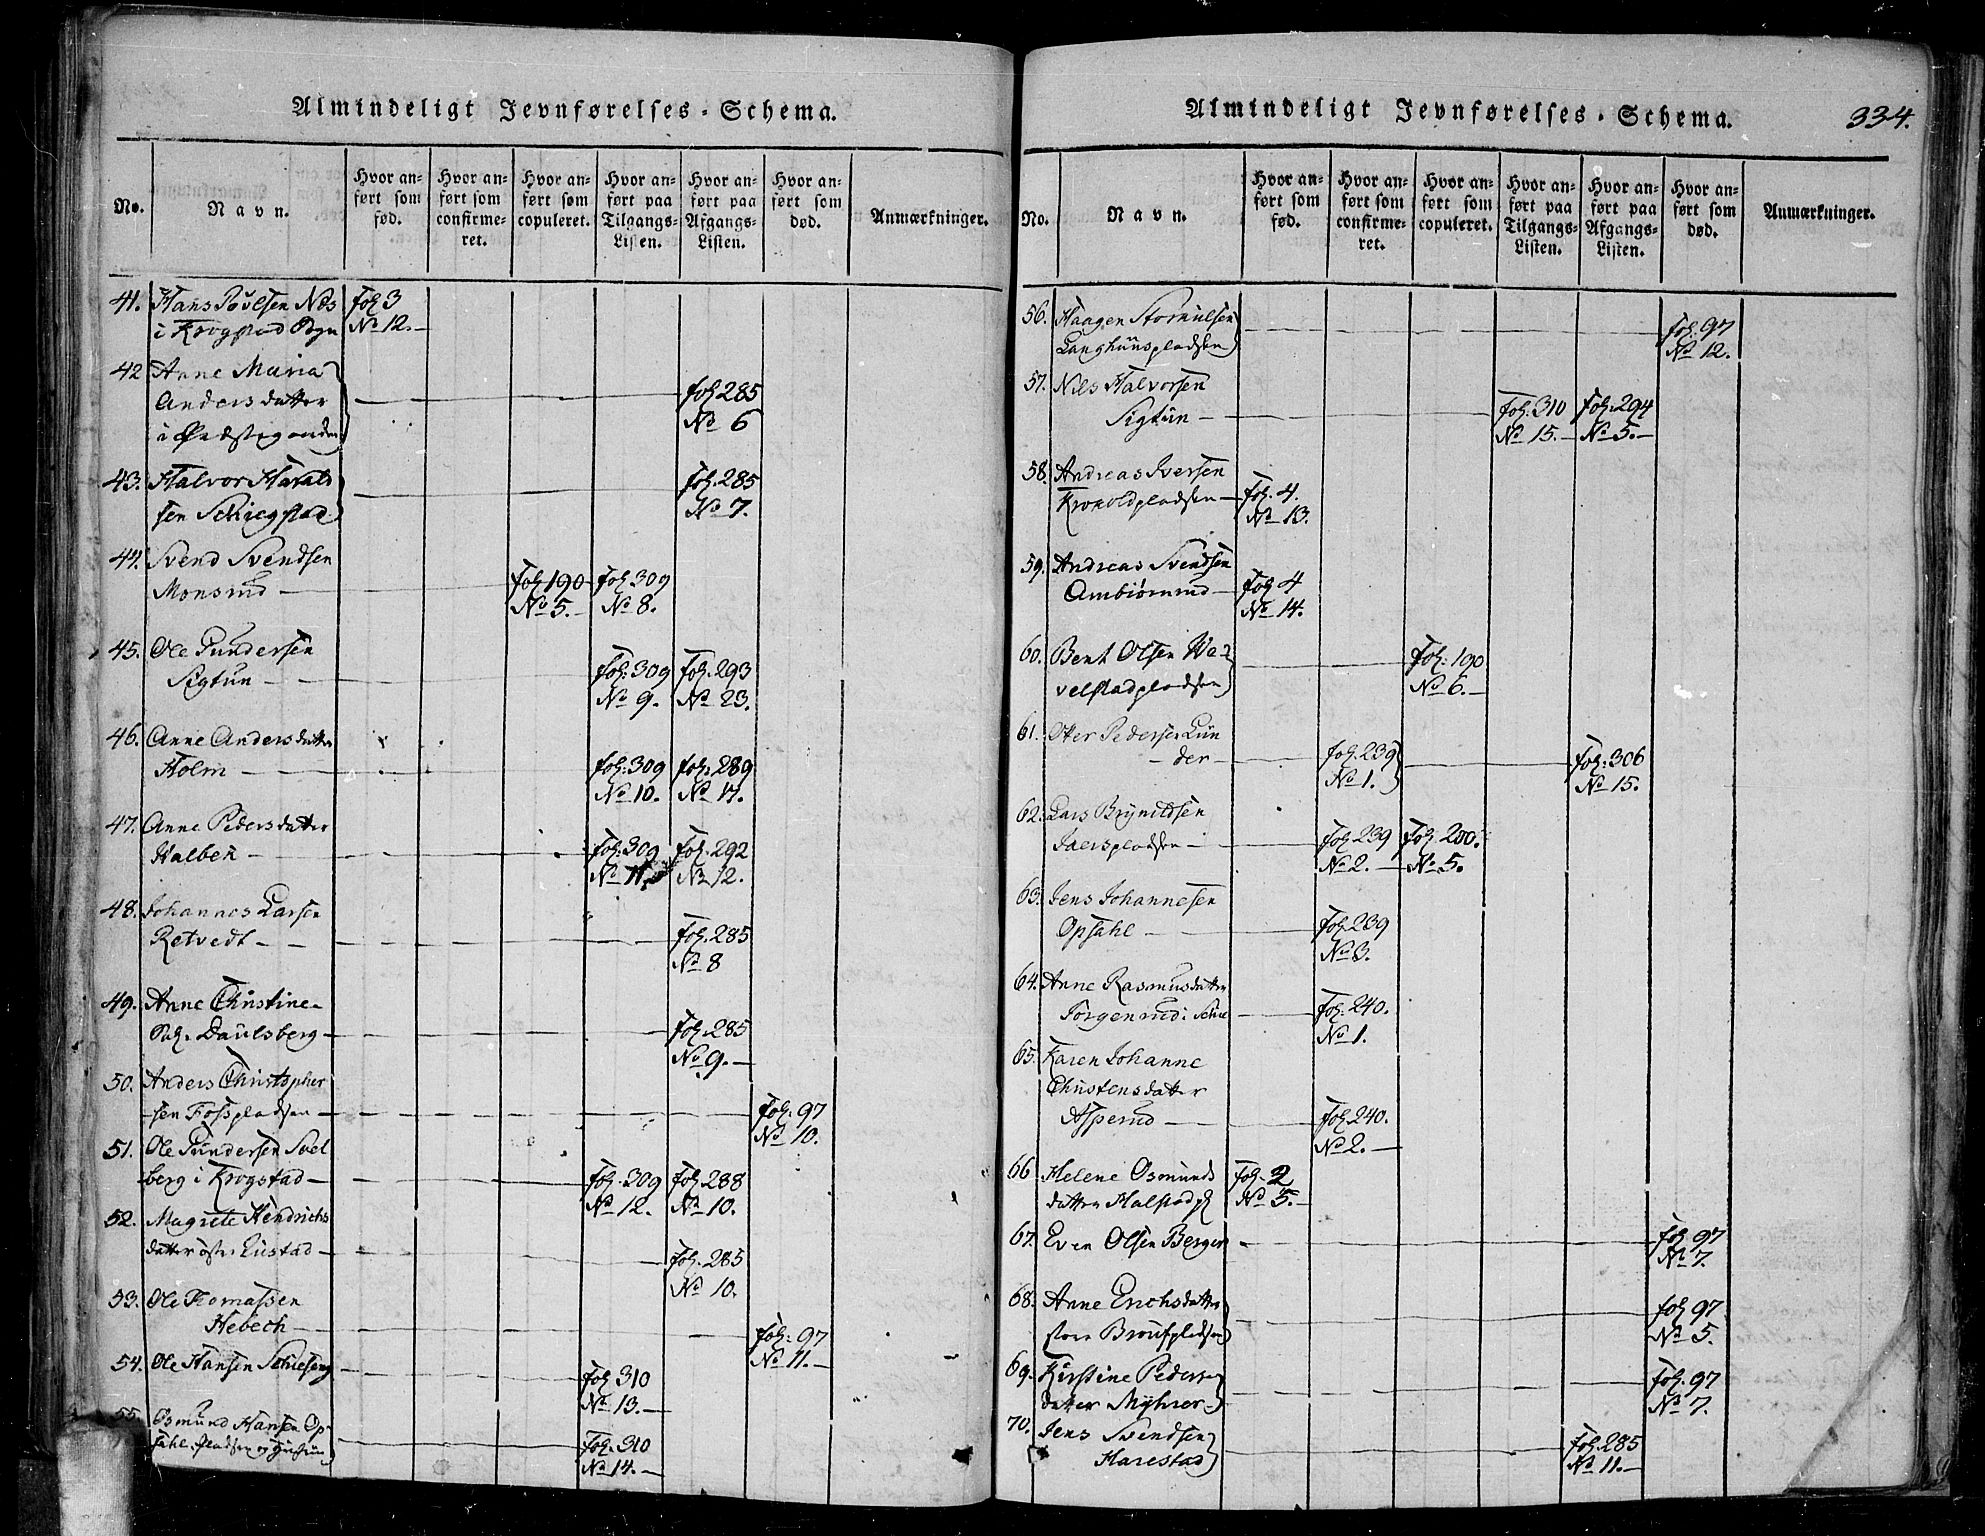 Almindeligt Jevnførelses-Schema.
No.
Navn.
Hvor anført som fød.
Hvor anført som confirmeret.
Hvor anført som copuleret.
Hvor anført paa Tilgangs-Listen.
Hvor anført paa Afgangs-Listen.
Hvor anført som død.
Anmærkninger.
41. Hans Povelsen Næs fol 3
i Krogstad Sogn No 12.
42 Anne Maria
Andersdatter fol 285
i No 6
43. Halvor Harald fol. 285
sen No 7.
44. Svend Svendsen
Monsrud fol 190 fol. 309
No 5. No 8.
45. Ole Gundersen
Sigtun fol. 309 fol. 293
No 9. No 23.
46. Anne Andersdatter
Holm fol: 309 fol. 289
No 10. No 17.
47. Anne Pedersdatter
fol: 309 fol. 292
No 11. No 12.
48. Johannes Larsen
Retvedt fol. 285
No 8
49. Anne Christine
Daulsberg fol. 285
No 9.
50. Anders Christopher
sen Fosspladsen fol. 97
No 10.
51. Ole Gundersen
berg i Krogstad fol. 309 fol. 288
No 12. No 10.
52. Magrete Hendrichs
datter fol. 285
No 10.
53. Ole Thomassen
Hebech fol: 97
No 11.
54. Ole Hansen fol 310
No 13.
55. Osmund Hansen Op-
sahl fol. 310
No 14.
Almindeligt Jevnførelses-Schema.
334.
No.
Navn.
Hvor anført som fød.
Hvor anført som confirmeret.
Hvor anført som copuleret.
Hvor anført paa Tilgangs-Listen.
Hvor anført paa Afgangs-Listen.
Hvor anført som død.
Anmærkninger.
56. Haagen fol. 97
No 12.
57. Nils Halvorsen
Sigtun fol. 310 fol. 294
No 15. No 5.
58. Andreas Iversen
fol. 4.
No 13.
59. Andreas Svendsen
fol 4
No 14.
60. Bent Olsen Ha-
velstadpladsen fol: 190
No 6.
61. Otter Pedersen Lun
der fol. 239 fol: 306
No 1. No 15.
62. Lars Brynildsen
fol 239 fol. 200.
No 2. No 5.
63. Jens Johannesen
Opsahl fol. 239
No 3.
64. Anne Rasmusdatter
Jørgenrud fol. 240.
No 1.
65. Karen Johanne
Christensdatter
Asperud fol 240.
No 2.
66 Helene Osmunds fol. 2
datter No 5.
67. Even Olsen Berger fol. 97
No 7.
68. Anne Erichsdatter fol 97
No 5.
69. Kirstine Peders fol. 97
datter Myhrer No 7.
70. Jens Svendsen fol. 285
Harestad No 11.